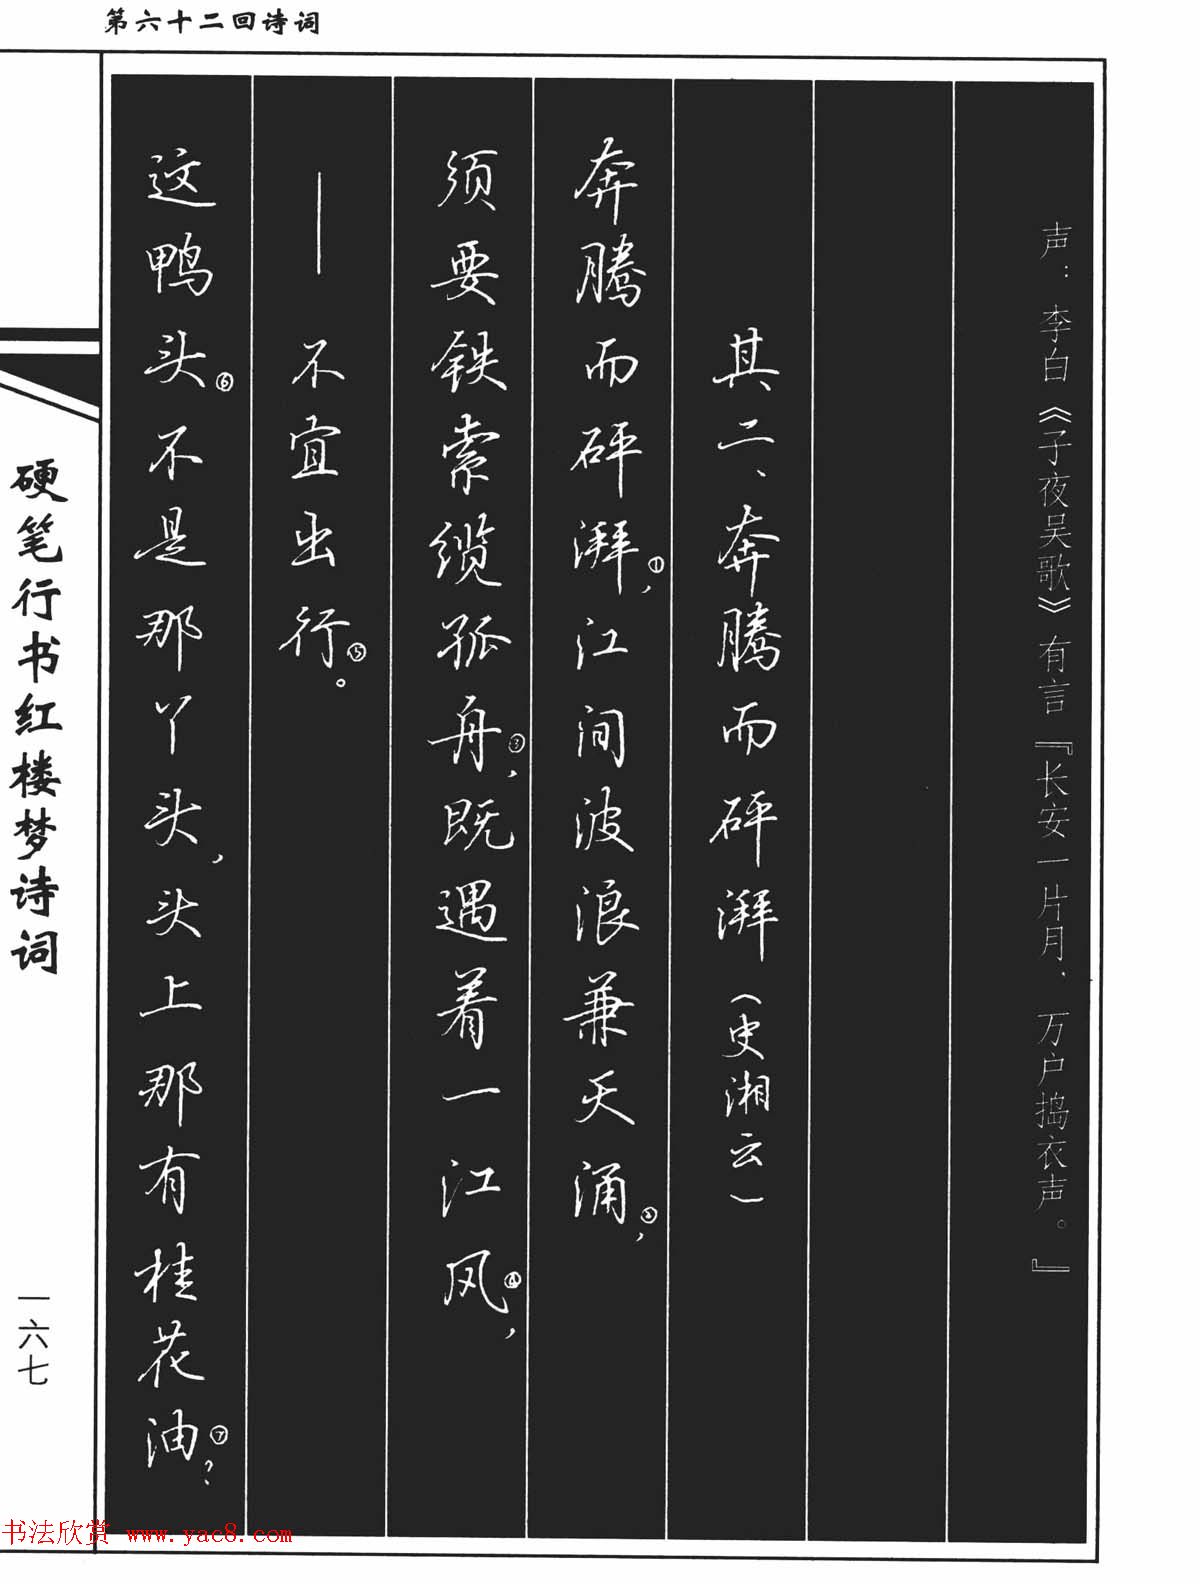 第六十二回诗词
声：李白《子夜吴歌》有言『长安一片月，万户捣衣声。』
其二、奔腾而砰湃（史湘云）
奔腾而砰湃①，江间波浪兼天涌②，
须要铁索缆孤舟③，既遇着一江风④，
——不宜出行⑤。
这鸭头⑥不是那丫头，头上那有桂花油⑦？
硬笔行书红楼梦诗词
一六七
书法欣赏 www.yac8.com